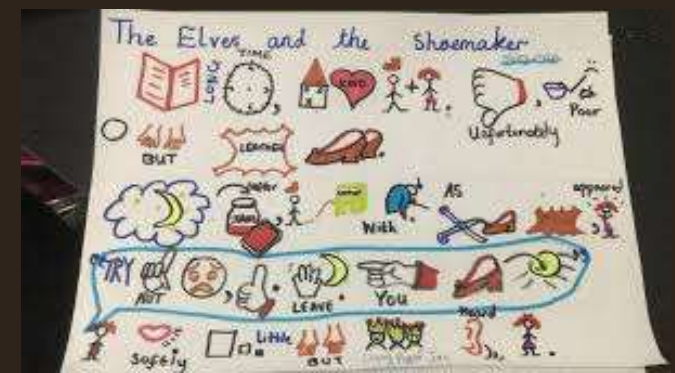 The Elves and the Shoemaker
LONG TIME KIND
Unfortunately Poor
BUT LEATHER
With AS appeared
"TRY NOT LEAVE. You"
Softly Little BUT Heard